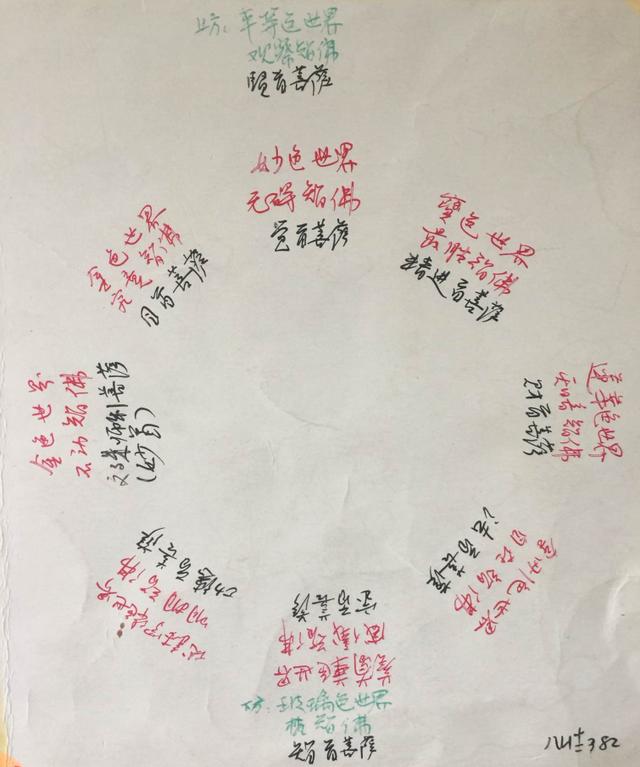 上方：平等色世界
观察智佛
贤首菩萨
妙色世界
无碍智佛
觉首菩萨
宝色世界
最胜智佛
精进首菩萨
金色世界
究竟智佛
目首菩萨
莲华色世界
智佛
财首菩萨
金色世界
不动智佛
文殊师利菩萨
(妙首)
金刚色世界
自在智佛
法首菩萨
色世界
智佛
功德首菩萨
华色世界
威仪智佛
宝首菩萨
下方：玻璃色世界
梵智佛
智首菩萨
382